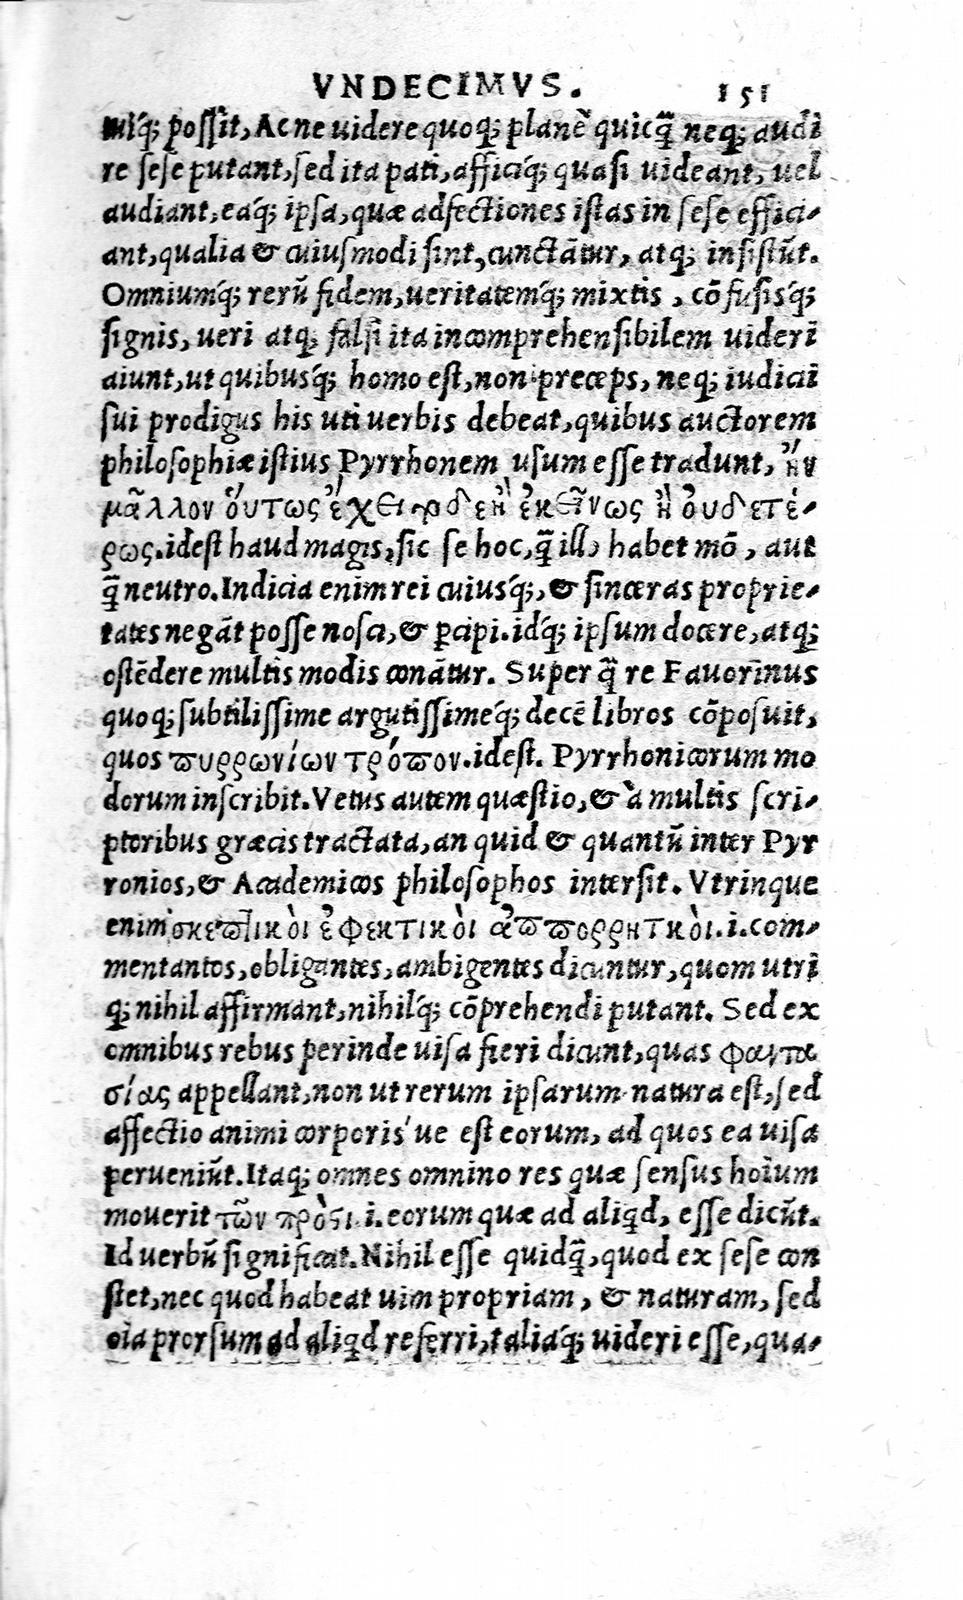 VNDECIMVS. 151
niq́; possit, Ac ne uidere quoq; planè quicq̃ neq; audi
re sese putant, sed ita pati, afficiq́; quasi uideant, uel
audiant, eaq́; ipsa, quæ adfectiones istas in sese effici-
ant, qualia & cuiusmodi sint, cunctãtur, atq; insistũt.
Omniumq́; rerũ fidem, ueritatemq́; mixtis, cõfusisq́;
signis, ueri atq; falsi ita incomprehensibilem uideri
aiunt, ut quibusq́; homo est, non preceps, neq; iudicii
sui prodigus his uti uerbis debeat, quibus auctorem
philosophiæ istius Pyrrhonem usum esse tradunt,
μᾶλλον ὅυτως ἔχει τόδε ἢ ἐκεῖνως ἢ ὀυδετέ-
ρως. idest haud magis, sic se hoc, q̃ illo habet mõ, aut
q̃ neutro. Indicia enim rei cuiusq́;, & sinceras proprie-
tates negãt posse nosci, & ꝑcipi. idq́; ipsum docere, atq;
ostẽdere multis modis conãtur. Super q̃ re Fauorinus
quoq; subtilissime argutissimeq́; decẽ libros cõposuit,
quos ϖυῤῥωνίων τρόϖον. idest. Pyrrhonicorum mo
dorum inscribit. Vetus autem quæstio, & à multis scri-
ptoribus græcis tractata, an quid & quantũ inter Pyr
ronios, & Academicos philosophos intersit. Vtrinque
enim σκεϖτικὸι ἐφεκτικὸι ἀϖϖορρητκὸι. i. com-
mentantes, obligantes, ambigentes dicuntur, quom utri
q; nihil affirmant, nihilq́; cõprehendi putant. Sed ex
omnibus rebus perinde uisa fieri dicunt, quas φαντα
σίας appellant, non ut rerum ipsarum natura est, sed
affectio animi corporis'ue est eorum, ad quos ea uisa
perueniũt. Itaq; omnes omnino res quæ sensus hoium
mouerit τῶν πρὸςι i. eorum quæ ad aliqd, esse dicũt.
Id uerbũ significat. Nihil esse quidq̃, quod ex sese con
stet, nec quod habeat uim propriam, & naturam, sed
oia prorsum ad aliqd referri, taliaq́; uideri esse, qua-